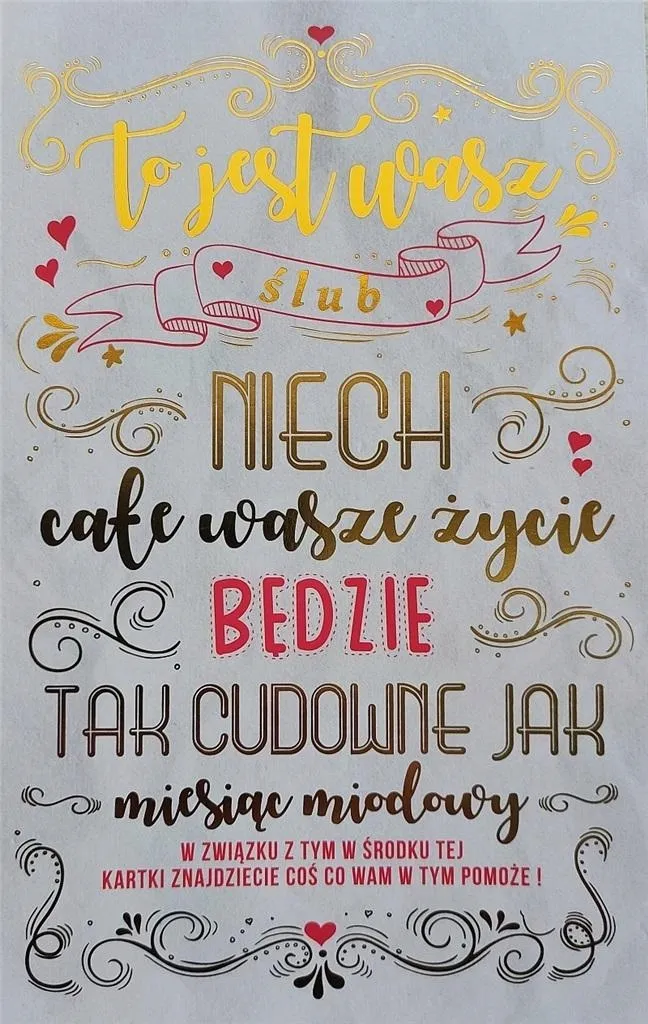 to jest wasz
ślub
NIECH
całe wasze życie
BĘDZIE
TAK CUDOWNE JAK
miesiąc miodowy
W ZWIĄZKU Z TYM W ŚRODKU TEJ
KARTKI ZNAJDZIECIE COŚ CO WAM W TYM POMOŻE !